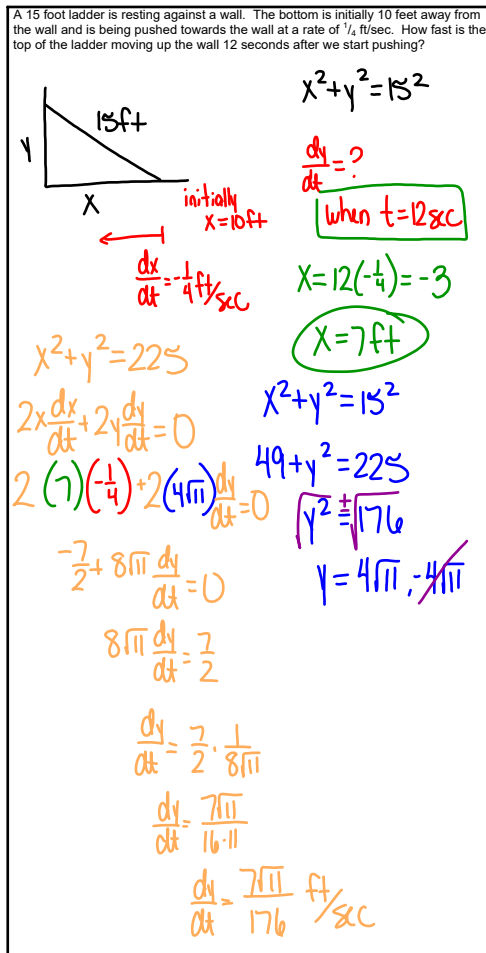 A 15 foot ladder is resting against a wall. The bottom is initially 10 feet away from
the wall and is being pushed towards the wall at a rate of ¹/₄ ft/sec. How fast is the
top of the ladder moving up the wall 12 seconds after we start pushing?
15ft
y
x
initially
x=10ft
dx/dt = -1/4 ft/sec
x²+y²=15²
dy/dt = ?
when t=12sec
x=12(-1/4)=-3
x=7ft
x²+y²=225
2x dx/dt + 2y dy/dt = 0
2(7)(-1/4)+2(4√11) dy/dt = 0
-7/2 + 8√11 dy/dt = 0
8√11 dy/dt = 7/2
dy/dt = 7/2 · 1/8√11
dy/dt = 7√11/16·11
dy/dt = 7√11/176 ft/sec
x²+y²=15²
49+y²=225
√y² = ±√176
y=4√11,-4√11